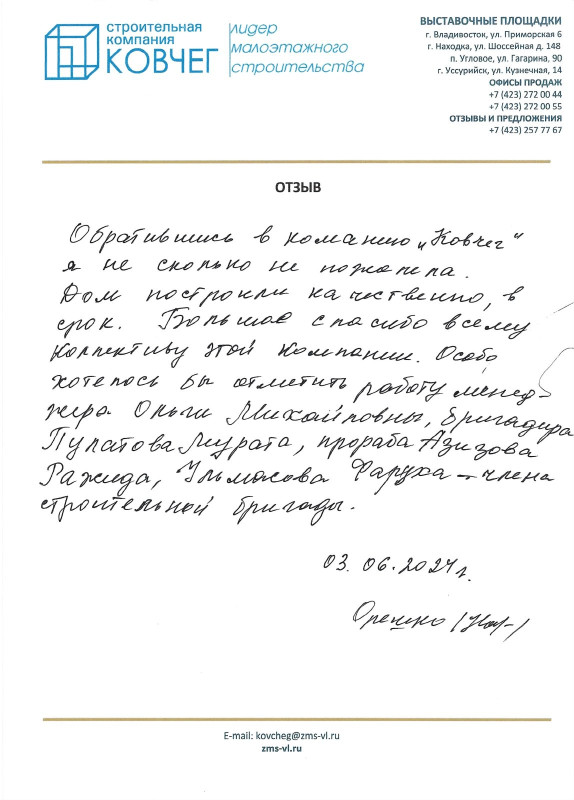 строительная
компания
КОВЧЕГ
лидер
малоэтажного
строительства
ВЫСТАВОЧНЫЕ ПЛОЩАДКИ
г. Владивосток, ул. Приморская 6
г. Находка, ул. Шоссейная д. 148
п. Угловое, ул. Гагарина, 90
г. Уссурийск, ул. Кузнечная, 14
ОФИСЫ ПРОДАЖ
+7 (423) 272 00 44
+7 (423) 272 00 55
ОТЗЫВЫ И ПРЕДЛОЖЕНИЯ
+7 (423) 257 77 67
ОТЗЫВ
Обратившись в команию „Ковчег“
я не сколько не пожалела.
Дом построили качественно, в
срок. Большое спасибо всему
коллективу этой компании. Особо
хотелось бы отметить работу менед-
жера Ольги Михайловны, бригадира
Пулатова Мурата, прораба Азизова
Ражида, Ульмасова Фаруха – члена
строительной бригады.
03.06.2024г.
Орешко
E-mail: kovcheg@zms-vl.ru
zms-vl.ru